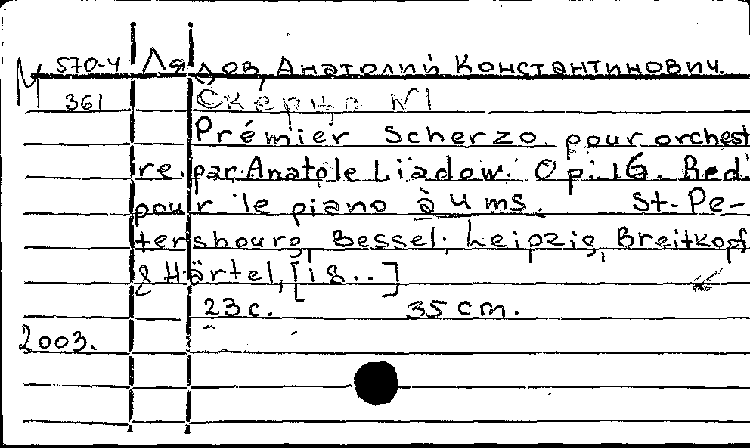 М 570-4 Лядов, Анатолий Константинович.
361 Скерцо N1
Prémier Scherzo pour orchest
re par Anatole Liadow. Op. 16. Red.
pour le piano à 4 ms. St-Pe-
tersbourg, Bessel; Leipzig, Breitkopf
& Härtel, [18..]
23 с. 35 cm.
2003.